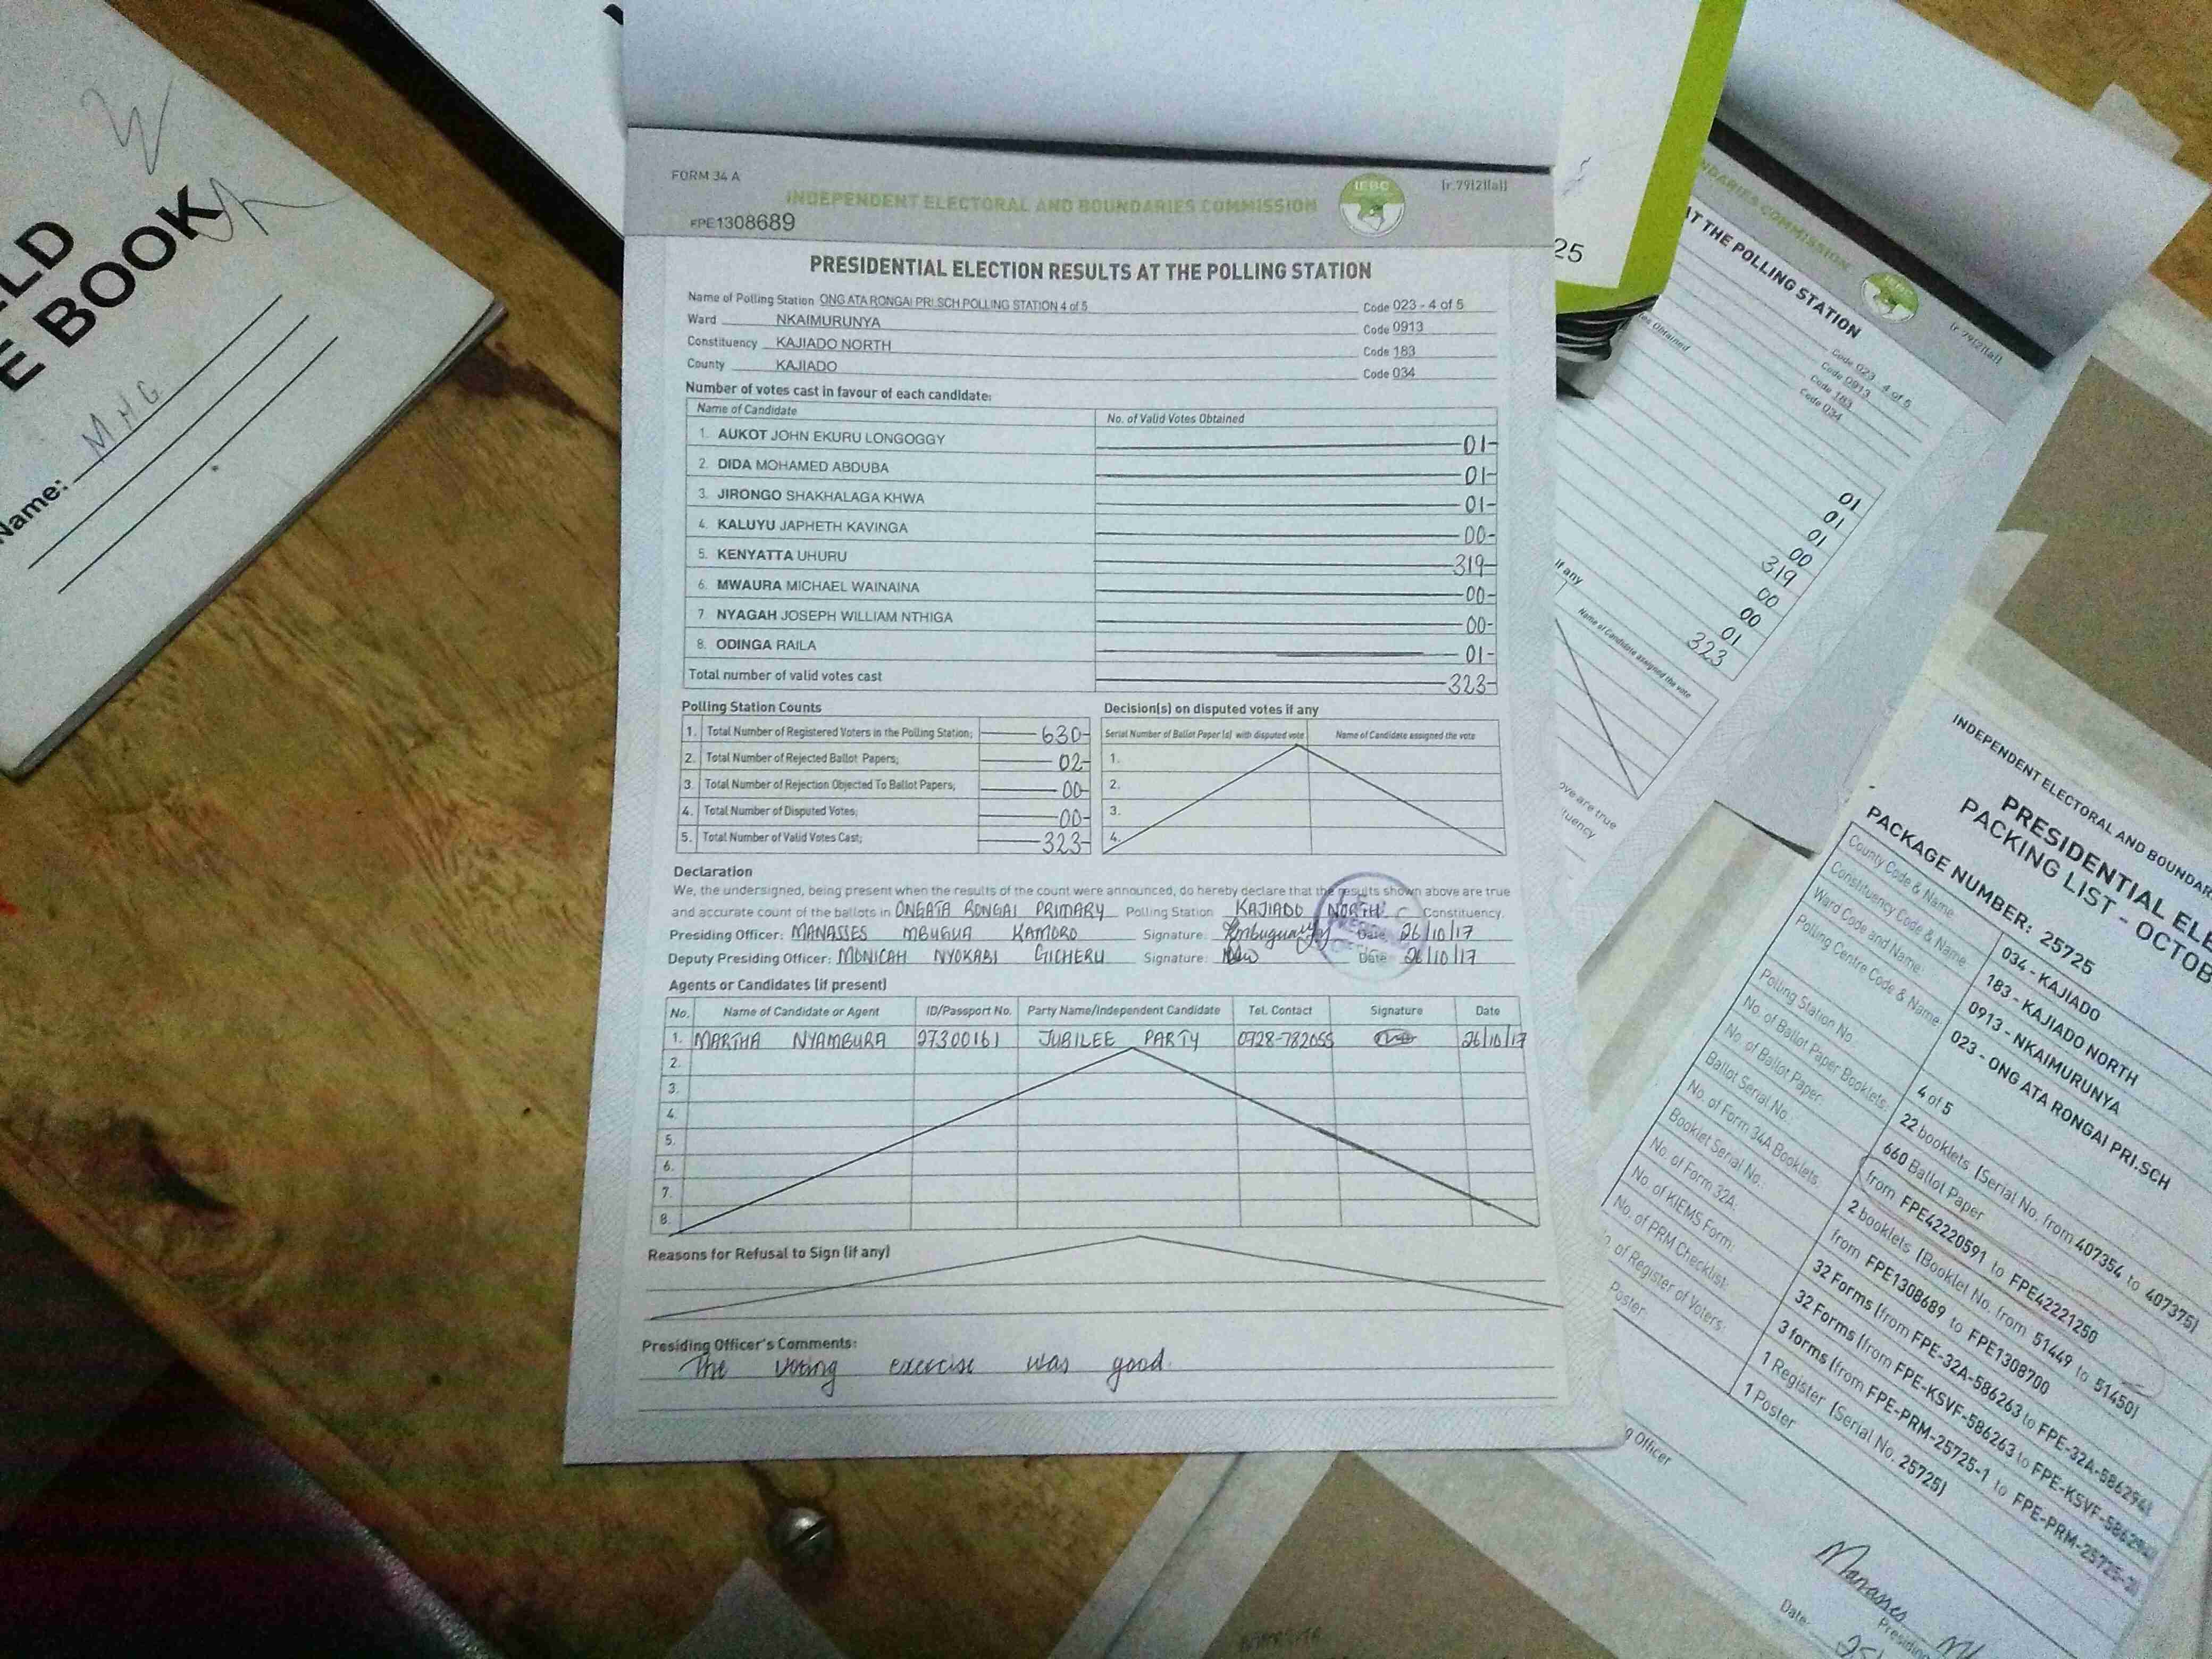 FORM 34 A
[r.79(2)(a)]
INDEPENDENT ELECTORAL AND BOUNDARIES COMMISSION
IEBC
FPE1308689
PRESIDENTIAL ELECTION RESULTS AT THE POLLING STATION
Name of Polling Station ONG ATA RONGAI PRI.SCH POLLING STATION 4 of 5 Code 023 - 4 of 5
Ward NKAIMURUNYA Code 0913
Constituency KAJIADO NORTH Code 183
County KAJIADO Code 034
Number of votes cast in favour of each candidate:
Name of Candidate No. of Valid Votes Obtained
1. AUKOT JOHN EKURU LONGOGGY 01
2. DIDA MOHAMED ABDUBA 01
3. JIRONGO SHAKHALAGA KHWA 01
4. KALUYU JAPHETH KAVINGA 00
5. KENYATTA UHURU 319
6. MWAURA MICHAEL WAINAINA 00
7 NYAGAH JOSEPH WILLIAM NTHIGA 00
8. ODINGA RAILA 01
Total number of valid votes cast 323
Polling Station Counts
1. Total Number of Registered Voters in the Polling Station; 630
2. Total Number of Rejected Ballot Papers; 02
3. Total Number of Rejection Objected To Ballot Papers; 00
4. Total Number of Disputed Votes; 00
5. Total Number of Valid Votes Cast; 323
Decision(s) on disputed votes if any
Serial Number of Ballot Paper (s) with disputed vote Name of Candidate assigned the vote
1.
2.
3.
4.
Declaration
We, the undersigned, being present when the results of the count were announced, do hereby declare that the results shown above are true
and accurate count of the ballots in ONGATA RONGAI PRIMARY Polling Station KAJIADO NORTH Constituency.
Presiding Officer: MANASSES MBUGUA KAMORO Signature: Date 26/10/17
Deputy Presiding Officer: MONICAH NYOKABI GICHERU Signature: Date 26/10/17
Agents or Candidates (if present)
No. Name of Candidate or Agent ID/Passport No. Party Name/Independent Candidate Tel. Contact Signature Date
1. MARTHA NYAMBURA 27300161 JUBILEE PARTY 0728-782055 26/10/17
2.
3.
4.
5.
6.
7.
8.
Reasons for Refusal to Sign (if any)
Presiding Officer's Comments:
The voting exercise was good.
LD
E BOOK
Name: MHG
25
NDARIES COMMISSION
[r.79(2)(a)]
AT THE POLLING STATION
Code 023 - 4 of 5
Code 0913
Code 183
Code 034
Obtained
01
01
01
00
319
00
00
01
323
if any
Name of Candidate assigned the vote
ove are true
tuency
INDEPENDENT ELECTORAL AND BOUNDAR
PRESIDENTIAL ELE
PACKING LIST - OCTOB
PACKAGE NUMBER: 25725
County Code & Name 034 - KAJIADO
Constituency Code & Name 183 - KAJIADO NORTH
Ward Code and Name: 0913 - NKAIMURUNYA
Polling Centre Code & Name: 023 - ONG ATA RONGAI PRI.SCH
Polling Station No. 4 of 5
No. of Ballot Paper Booklets: 22 booklets (Serial No. from 407354 to 407375)
No. of Ballot Paper: 660 Ballot Paper
Ballot Serial No.: from FPE42220591 to FPE42221250
No. of Form 34A Booklets 2 booklets (Booklet No. from 51449 to 51450)
Booklet Serial No.: from FPE1308689 to FPE1308700
No. of Form 32A: 32 Forms (from FPE-32A-586263 to FPE-32A-586294)
No. of KIEMS Form: 32 Forms (from FPE-KSVF-586263 to FPE-KSVF-586294)
No. of PRM Checklist: 3 forms (from FPE-PRM-25725-1 to FPE-PRM-25725-3)
of Register of Voters: 1 Register (Serial No. 25725)
Poster: 1 Poster
g Officer
Manasses
Presiding
Date